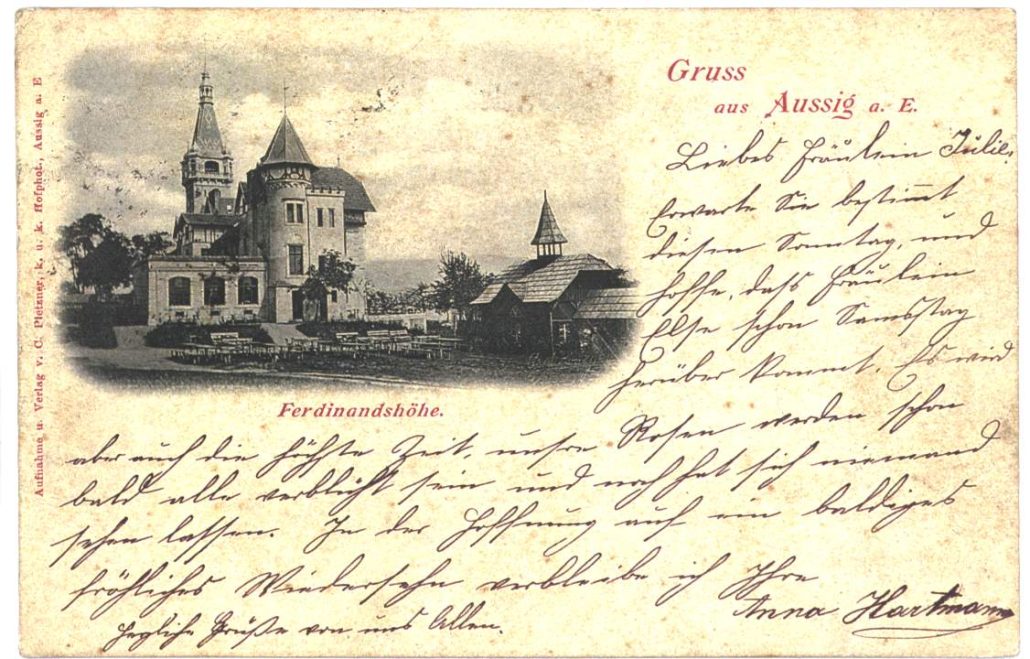 Gruss
aus Aussig a. E.
Liebes Fräulein Julie.
Erwarte Sie bestimmt
diesen Sonntag, und
hoffe, dass Fräulein
Else schon Samstag
herüber kommt. Es wird
Ferdinandshöhe.
aber auch die höchste Zeit, unsre Rosen werden schon
bald alle verblüht sein und noch hat sich niemand
sehen lassen. In der Hoffnung auf ein baldiges
fröhliches Wiedersehn verbleibe ich Ihre
Anna Hartmann
Herzliche Grüße von uns Allen.
Aufnahme u. Verlag v. C. Pietzner, k. u. k. Hofphot., Aussig a. E